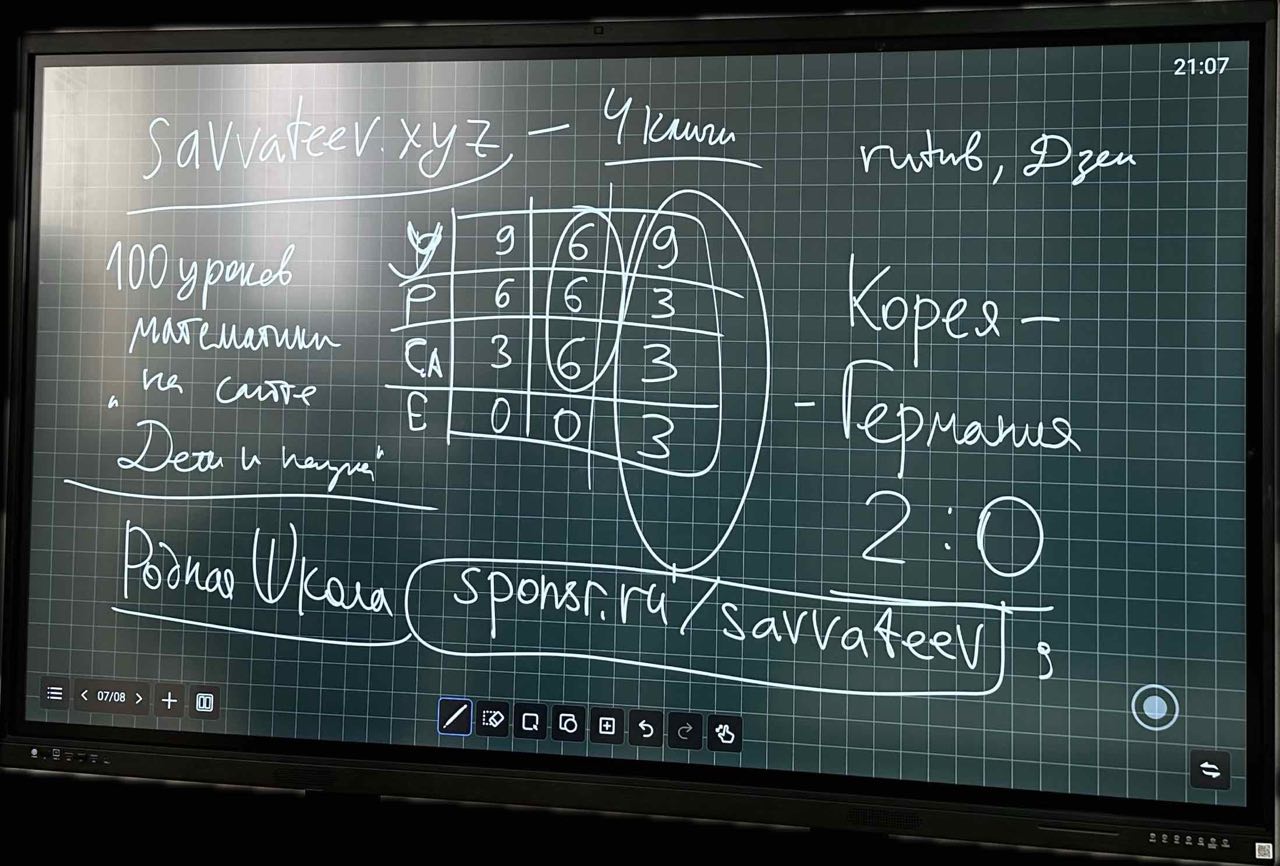 21:07
savvateev.xyz — 4 книги
рутив, Дзен
100 уроков
математики
на сайте
"Дети и наука"
У 9 6 9
Р 6 6 3
СА 3 6 3
Е 0 0 3
Корея –
– Германия
2:0
Родная Школа
sponsr.ru/savvateev
07/08